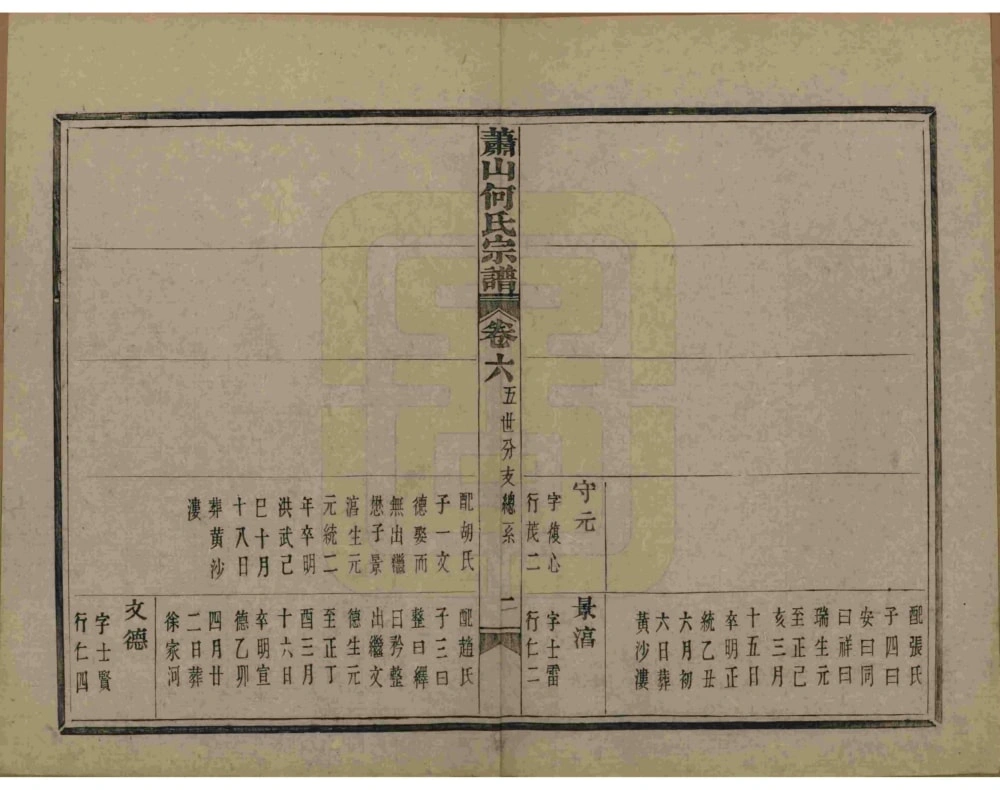 配張氏
子四曰
安曰同
曰祥曰
瑞生元
至正己
亥三月
十五日
卒明正
統乙丑
六月初
六日葬
黃沙漊
守元
字復心
行茂二
景滈
字士雷
行仁二
蕭山何氏宗譜
卷六
五世分支總系
二
配胡氏
子一文
德娶而
無出繼
懋子景
滈生元
元統二
年卒明
洪武己
巳十月
十八日
葬黄沙
漊
配趙氏
子三曰
整曰繹
曰矜整
出繼文
德生元
至正丁
酉三月
十六日
卒明宣
德乙卯
四月廿
二日葬
徐家河
文德
字士賢
行仁四